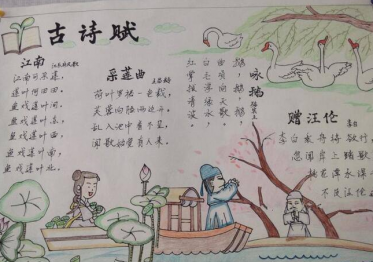 古诗赋
江南
江南可采莲,
莲叶何田田,
鱼戏莲叶间。
鱼戏莲叶东,
鱼戏莲叶西,
鱼戏莲叶南,
鱼戏莲叶北。
采莲曲
王昌龄
荷叶罗裙一色裁,
芙蓉向脸两边开。
乱入池中看不见,
闻歌始觉有人来。
咏鹅
骆宾王
鹅,鹅,鹅,
曲项向天歌。
白毛浮绿水,
红掌拨清波。
赠汪伦
李白
李白乘舟将欲行
忽闻岸上踏歌
桃花潭水深
不及汪伦